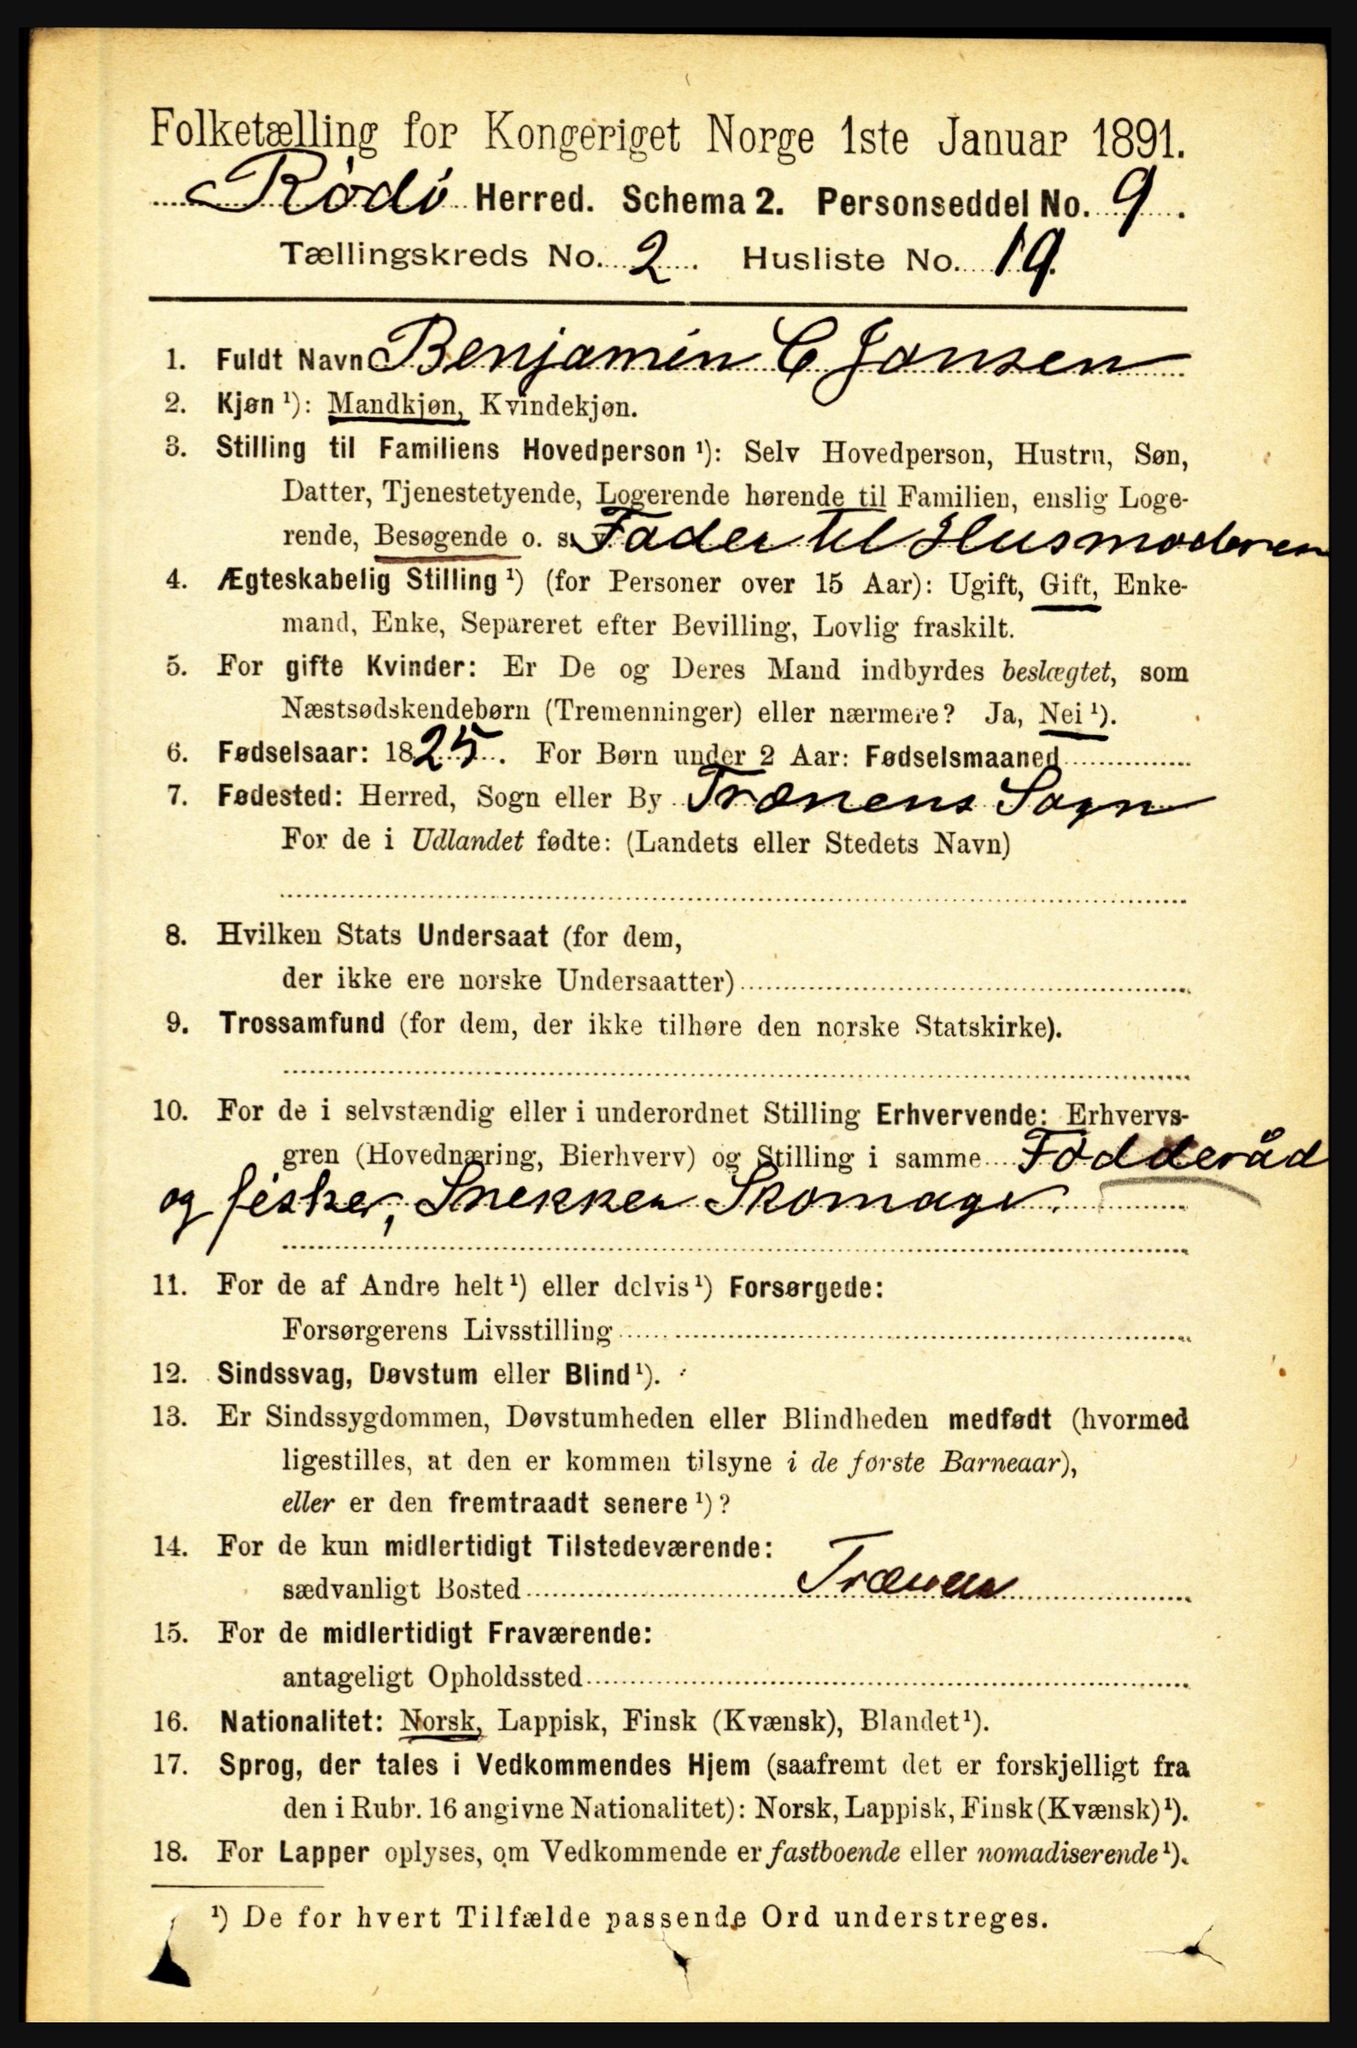 Folketælling for Kongeriget Norge 1ste Januar 1891.
Rødø Herred. Schema 2. Personseddel No. 9.
Tællingskreds No. 2. Husliste No. 19.
1. Fuldt Navn Benjamin C Jansen
2. Kjøn ¹): Mandkjøn, Kvindekjøn.
3. Stilling til Familiens Hovedperson ¹): Selv Hovedperson, Hustru, Søn,
Datter, Tjenestetyende, Logerende hørende til Familien, enslig Loge-
rende, Besøgende o. s. v. Fader til Husmoderen
4. Ægteskabelig Stilling ¹) (for Personer over 15 Aar): Ugift, Gift, Enke-
mand, Enke, Separeret efter Bevilling, Lovlig fraskilt.
5. For gifte Kvinder: Er De og Deres Mand indbyrdes beslægtet, som
Næstsødskendebørn (Tremenninger) eller nærmere? Ja, Nei ¹).
6. Fødselsaar: 1825. For Børn under 2 Aar: Fødselsmaaned
7. Fødested: Herred, Sogn eller By Trænens Sogn
For de i Udlandet fødte: (Landets eller Stedets Navn)
8. Hvilken Stats Undersaat (for dem,
der ikke ere norske Undersaatter)
9. Trossamfund (for dem, der ikke tilhøre den norske Statskirke).
10. For de i selvstændig eller i underordnet Stilling Erhvervende: Erhvervs-
gren (Hovednæring, Bierhverv) og Stilling i samme Fødderåd
og fisker, Snekker Skomager.
11. For de af Andre helt ¹) eller delvis ¹) Forsørgede:
Forsørgerens Livsstilling
12. Sindssvag, Døvstum eller Blind ¹).
13. Er Sindssygdommen, Døvstumheden eller Blindheden medfødt (hvormed
ligestilles, at den er kommen tilsyne i de første Barneaar),
eller er den fremtraadt senere ¹)?
14. For de kun midlertidigt Tilstedeværende:
sædvanligt Bosted Trænen
15. For de midlertidigt Fraværende:
antageligt Opholdssted
16. Nationalitet: Norsk, Lappisk, Finsk (Kvænsk), Blandet ¹).
17. Sprog, der tales i Vedkommendes Hjem (saafremt det er forskjelligt fra
den i Rubr. 16 angivne Nationalitet): Norsk, Lappisk, Finsk (Kvænsk) ¹).
18. For Lapper oplyses, om Vedkommende er fastboende eller nomadiserende ¹).
¹) De for hvert Tilfælde passende Ord understreges.